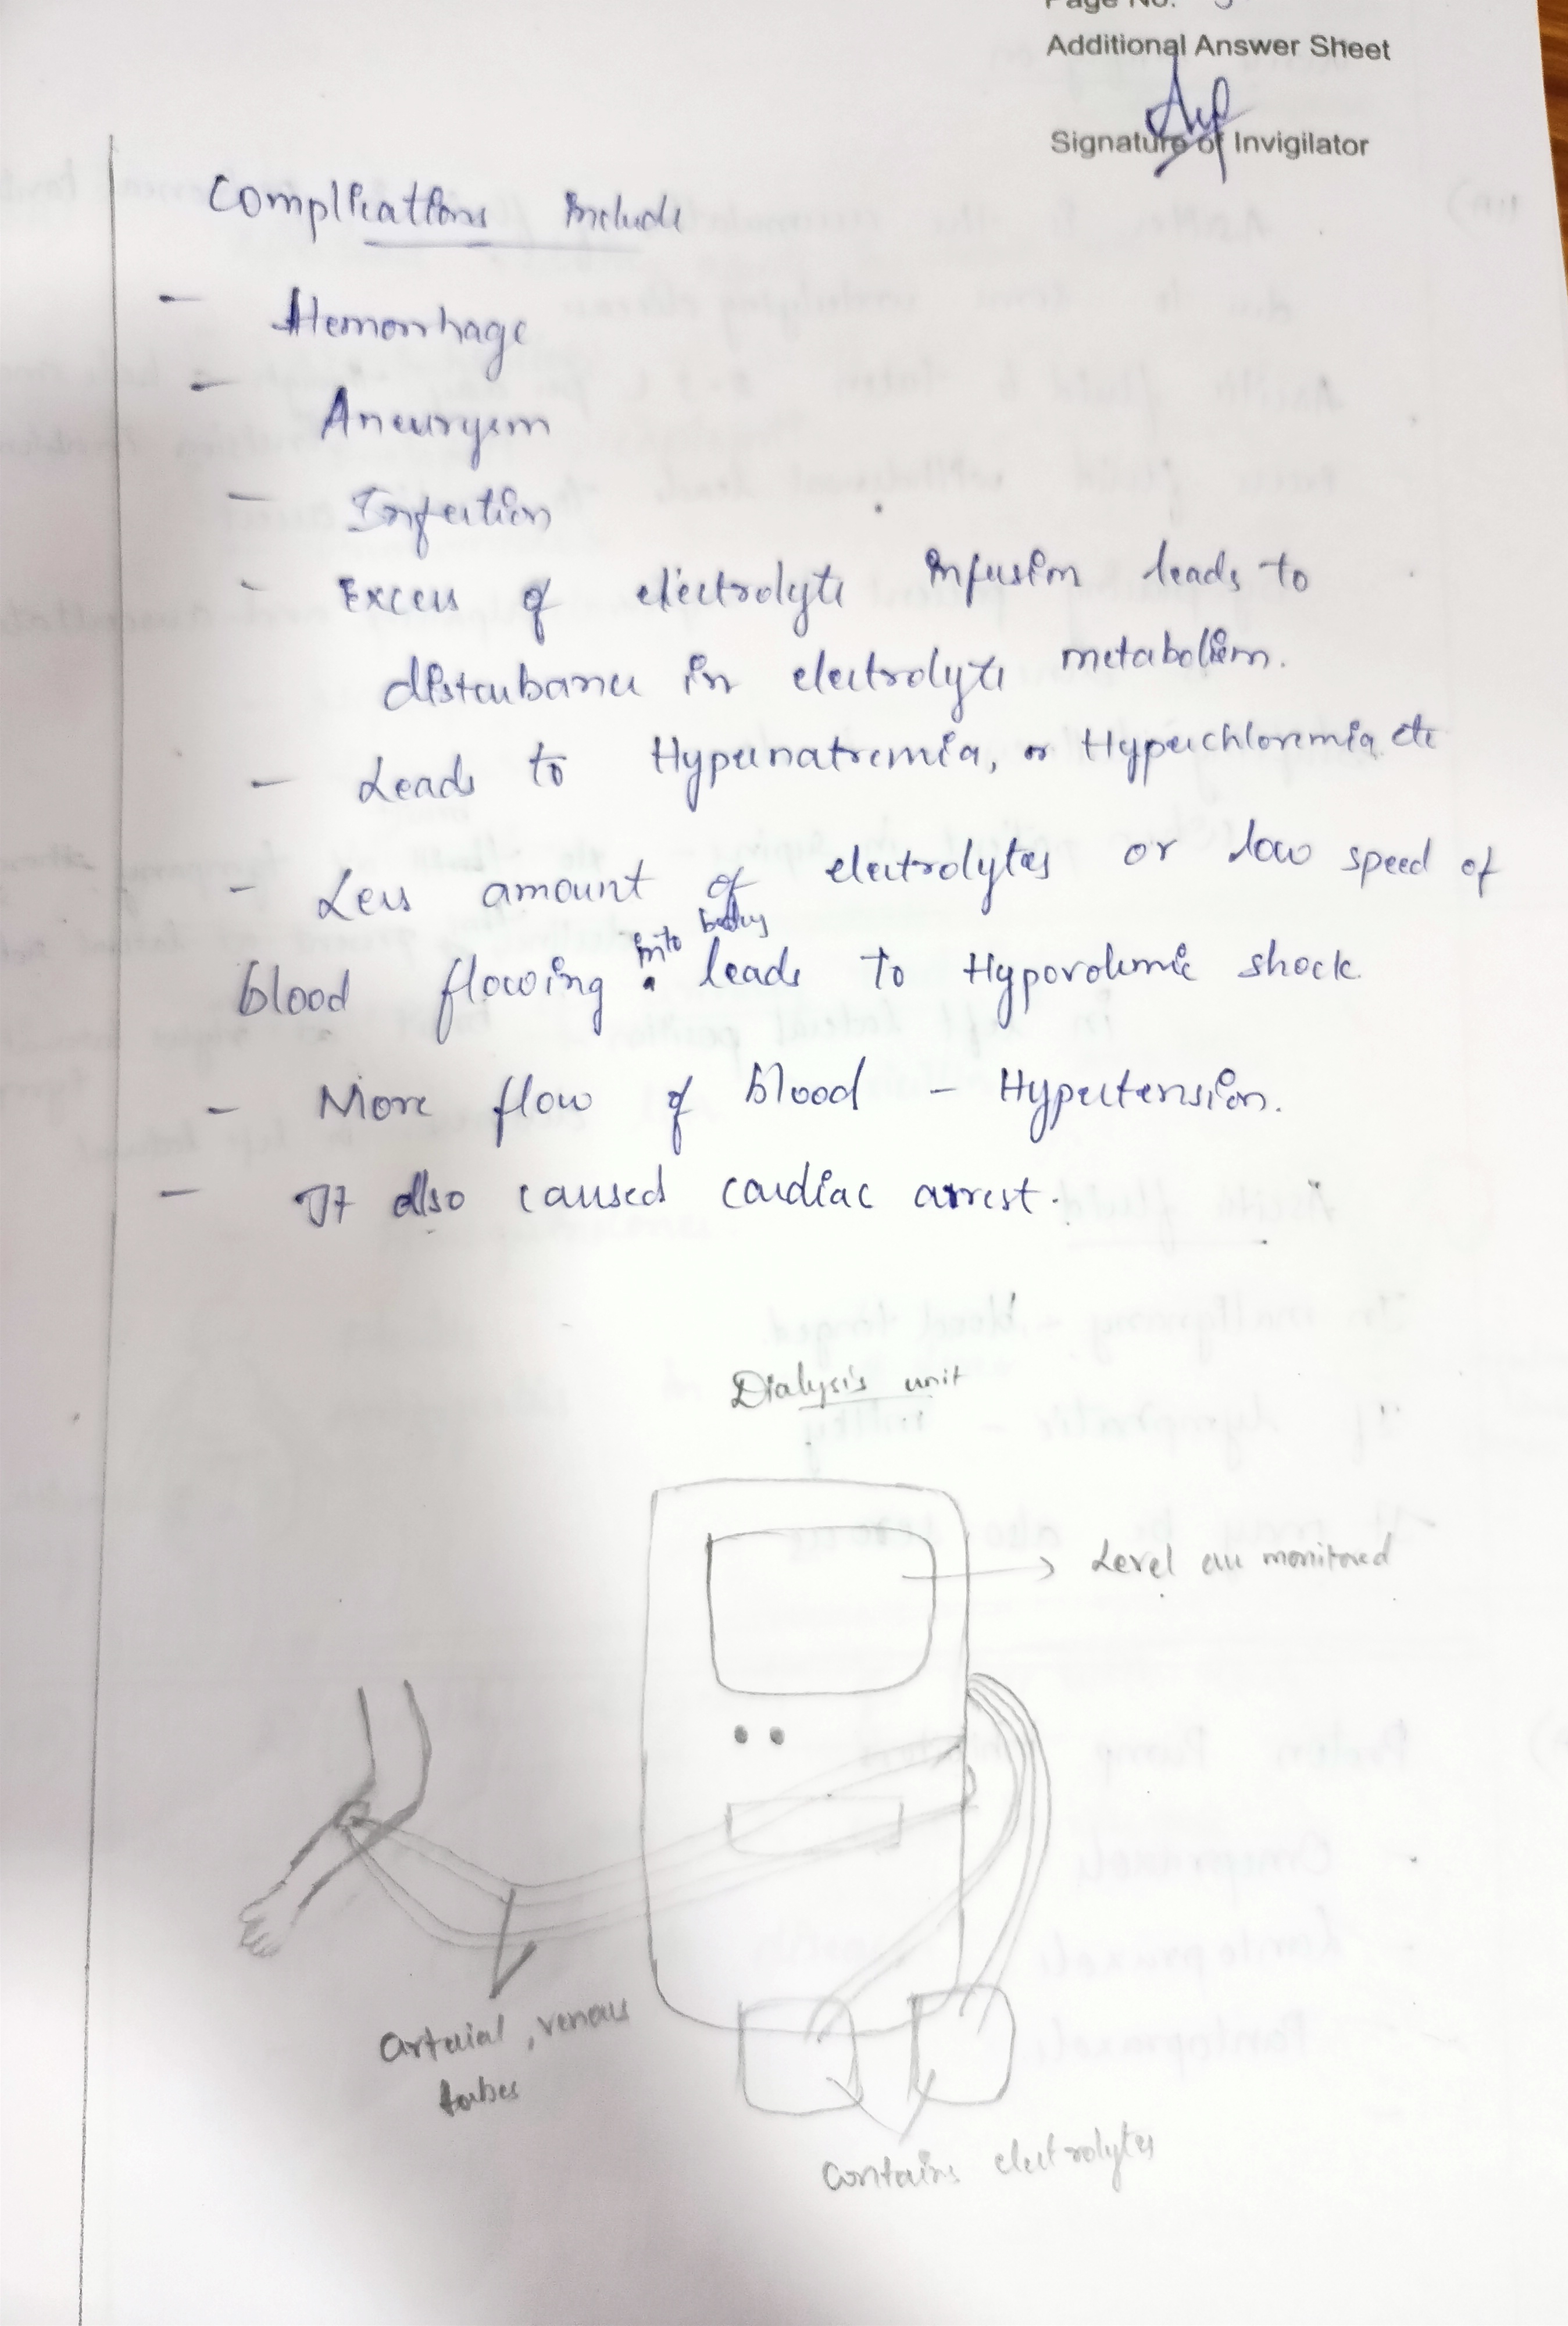 Page No.
Additional Answer Sheet
Signature of Invigilator
Complications include
- Hemorrhage
- Aneurysm
- Infection
- Excess of electrolyte infusion leads to
disturbance in electrolyte metabolism.
- Leads to Hypernatremia, or Hyperchloremia etc
- Less amount of electrolytes or low speed of
into body
blood flowing leads to Hypovolemic shock.
- More flow of blood - Hypertension.
- It also caused cardiac arrest.
Dialysis unit
Level are monitored
arterial, venous
tubes
Contains electrolytes